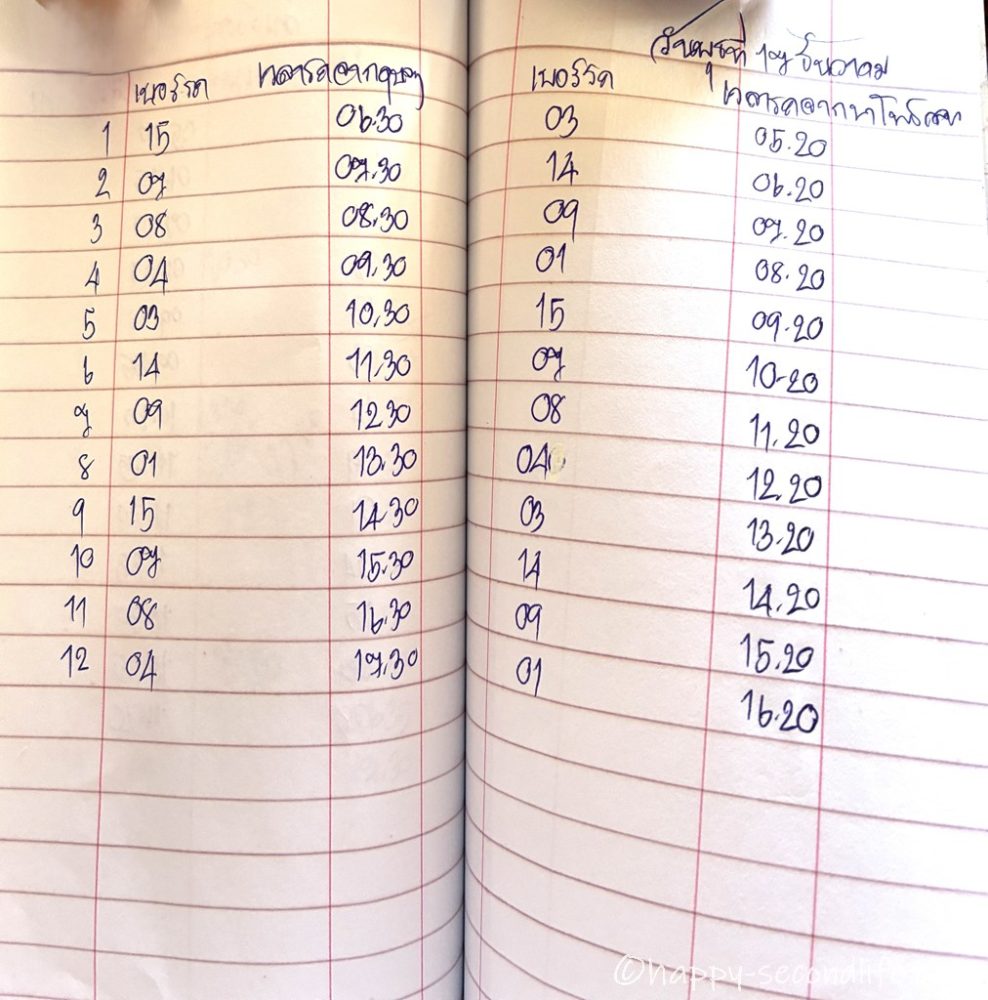 เบอร์รถ เวลารถจาก
1 15 06.30
2 07 07.30
3 08 08.30
4 04 09.30
5 03 10.30
6 14 11.30
7 09 12.30
8 01 13.30
9 15 14.30
10 07 15.30
11 08 16.30
12 04 17.30
วันพุธที่ 17 ธันวาคม
เบอร์รถ เวลารถจาก
03 05.20
14 06.20
09 07.20
01 08.20
15 09.20
07 10.20
08 11.20
04 12.20
03 13.20
14 14.20
09 15.20
01 16.20
©happy-secondlife